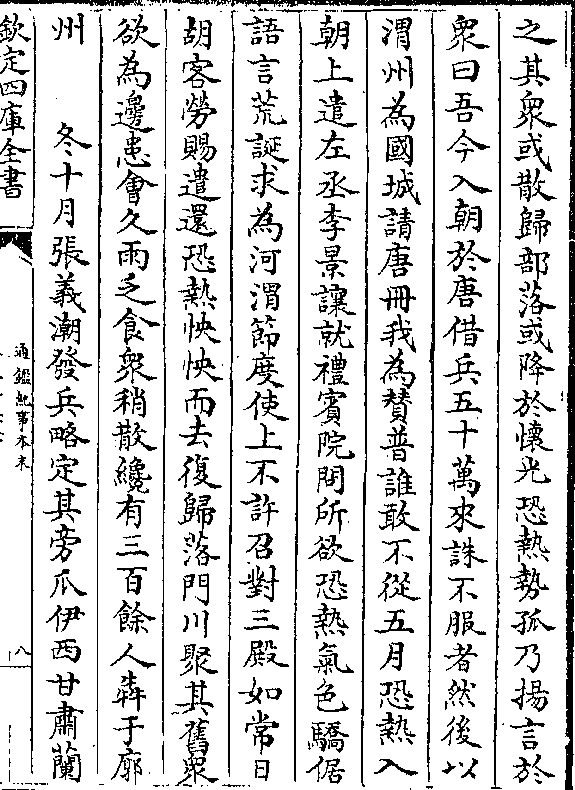 之其衆或散歸部落或降於懷光恐熱勢孤乃揚言於
衆曰吾今入朝於唐借兵五十萬來誅不服者然後以
渭州為國城請唐冊我為贊普誰敢不從五月恐熱入
朝上遣左丞李景讓就禮賓院問所欲恐熱氣色驕倨
語言荒誕求為河渭節度使上不許召對三殿如常日
胡客勞賜遣還恐熱怏怏而去復歸落門川聚其舊衆
欲為邊患會久雨乏食衆稍散纔有三百餘人犇于廓
州　冬十月張義潮發兵略定其旁瓜伊西甘肅蘭
欽定四庫全書
通鑑紀事本末
八